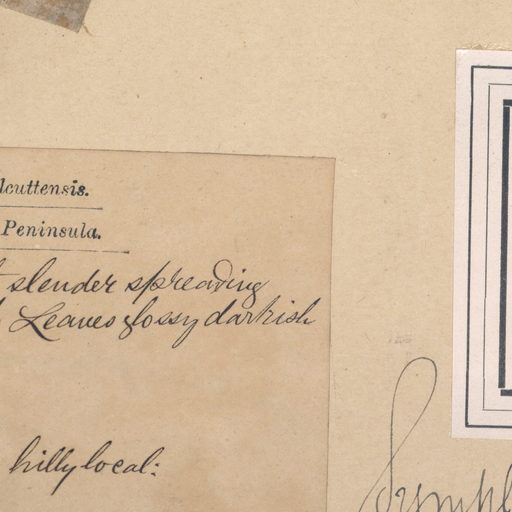 lcuttensis.
Peninsula.
slender spreading
Leaves glossy darkish
hilly local:
Sympl